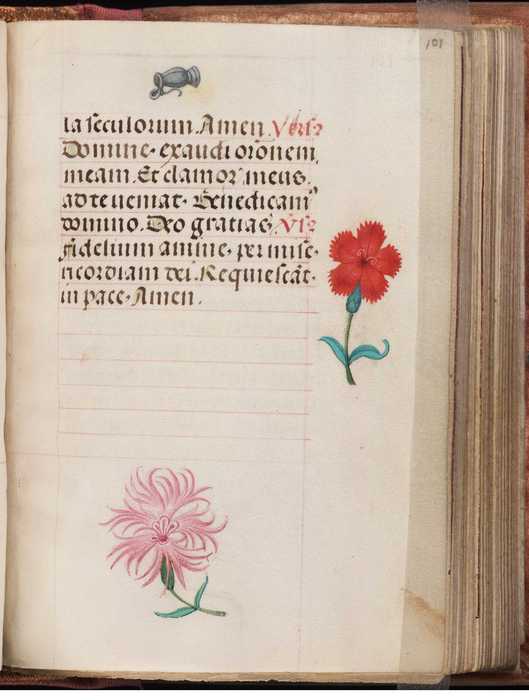 101
la seculorum. Amen. Vers?
Domine· exaudi orõnem,
meam. Et clamor, meus.
ad te ueniat· Benedicam9
domino. Deo gratias, Vs?
fidelium anime· per mise
ricordiam dei. Requiescãt·
in pace· Amen.